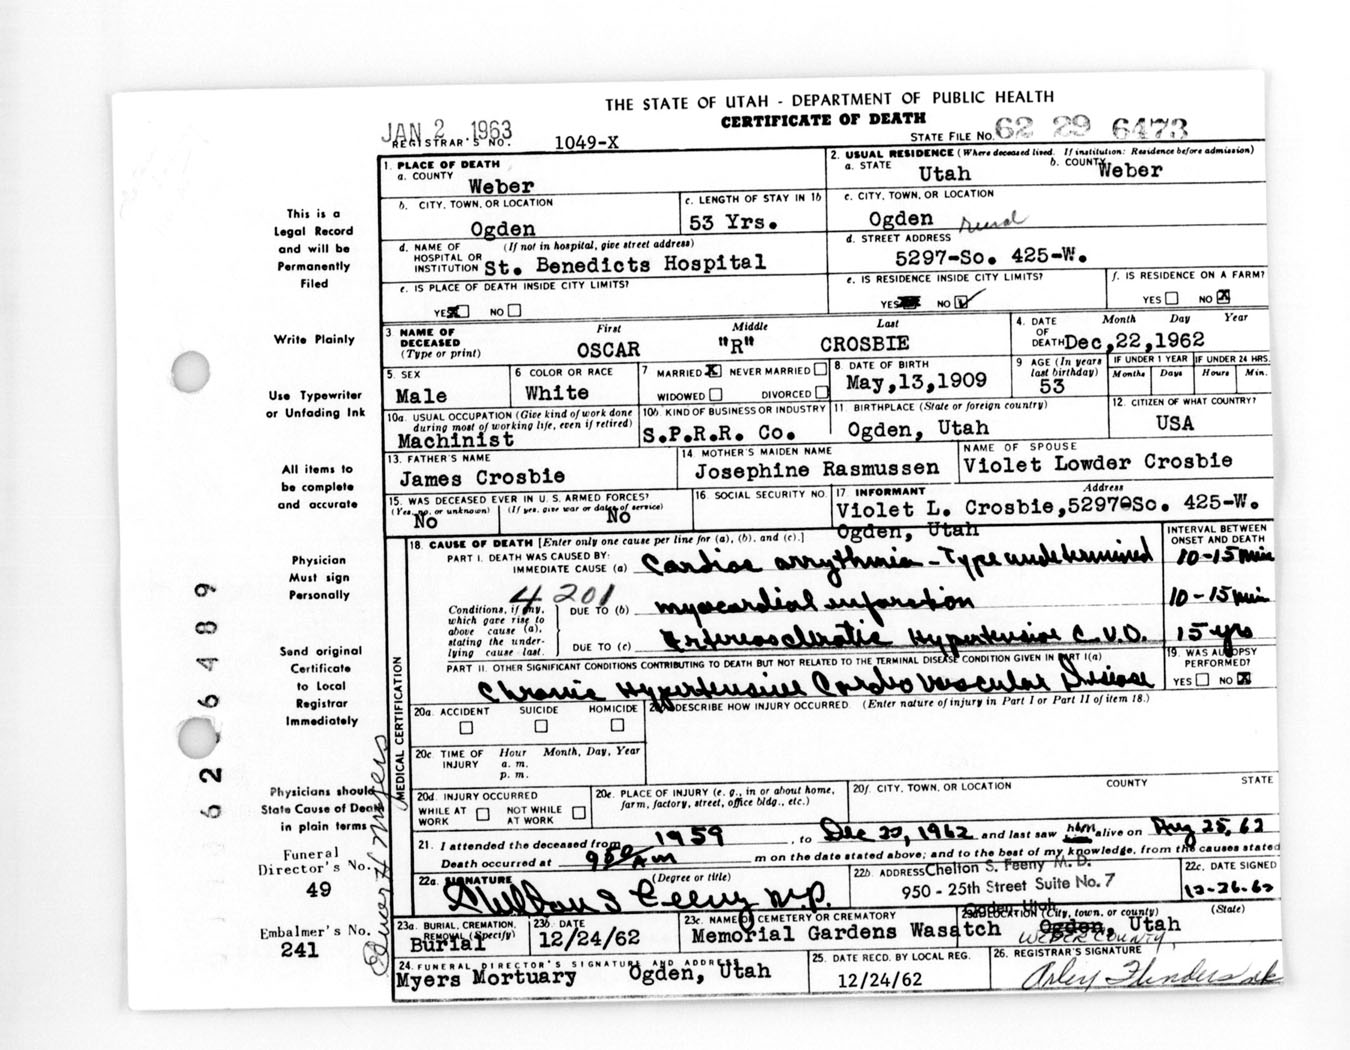 THE STATE OF UTAH - DEPARTMENT OF PUBLIC HEALTH
CERTIFICATE OF DEATH
JAN 2 1963
REGISTRAR'S NO. 1049-X
STATE FILE NO. 62 29 6473
1. PLACE OF DEATH
a. COUNTY
Weber
2. USUAL RESIDENCE (Where deceased lived. If institution: Residence before admission)
a. STATE
Utah
b. COUNTY
Weber
b. CITY, TOWN, OR LOCATION
Ogden
c. LENGTH OF STAY IN 1b
53 Yrs.
c. CITY, TOWN, OR LOCATION
Ogden Rural
d. NAME OF HOSPITAL OR INSTITUTION (If not in hospital, give street address)
St. Benedicts Hospital
d. STREET ADDRESS
5297-So. 425-W.
e. IS PLACE OF DEATH INSIDE CITY LIMITS?
YES X NO
e. IS RESIDENCE INSIDE CITY LIMITS?
YES NO ✓
f. IS RESIDENCE ON A FARM?
YES NO X
3 NAME OF DECEASED (Type or print)
First Middle Last
OSCAR "R" CROSBIE
4. DATE OF DEATH Month Day Year
Dec,22,1962
5. SEX
Male
6 COLOR OR RACE
White
7 MARRIED X NEVER MARRIED
WIDOWED DIVORCED
8 DATE OF BIRTH
May,13,1909
9 AGE (In years last birthday)
53
IF UNDER 1 YEAR
Months Days
IF UNDER 24 HRS.
Hours Min.
10a. USUAL OCCUPATION (Give kind of work done during most of working life, even if retired)
Machinist
10b. KIND OF BUSINESS OR INDUSTRY
S.P.R.R. Co.
11 BIRTHPLACE (State or foreign country)
Ogden, Utah
12. CITIZEN OF WHAT COUNTRY?
USA
13. FATHER'S NAME
James Crosbie
14 MOTHER'S MAIDEN NAME
Josephine Rasmussen
NAME OF SPOUSE
Violet Lowder Crosbie
15. WAS DECEASED EVER IN U. S. ARMED FORCES?
(Yes, no, or unknown) (If yes, give war or dates of service)
No No
16. SOCIAL SECURITY NO.
17 INFORMANT Address
Violet L. Crosbie,5297-So. 425-W.
Ogden, Utah
18. CAUSE OF DEATH [Enter only one cause per line for (a), (b), and (c).]
INTERVAL BETWEEN ONSET AND DEATH
PART I. DEATH WAS CAUSED BY:
IMMEDIATE CAUSE (a) Cardiac arrythmia - Type undetermined 10-15 min
4 201
Conditions, if any, which gave rise to above cause (a), stating the underlying cause last.
DUE TO (b) myocardial infarction 10-15 min
DUE TO (c) Arteriosclerotic Hypertensive C.V.D. 15 yrs
PART II. OTHER SIGNIFICANT CONDITIONS CONTRIBUTING TO DEATH BUT NOT RELATED TO THE TERMINAL DISEASE CONDITION GIVEN IN PART I(a)
Chronic Hypertensive Cardio Vascular Disease
19. WAS AUTOPSY PERFORMED?
YES NO X
20a. ACCIDENT SUICIDE HOMICIDE
20b. DESCRIBE HOW INJURY OCCURRED. (Enter nature of injury in Part I or Part II of item 18.)
20c TIME OF INJURY Hour Month, Day, Year
a. m.
p. m.
20d. INJURY OCCURRED
WHILE AT WORK NOT WHILE AT WORK
20e. PLACE OF INJURY (e. g., in or about home, farm, factory, street, office bldg., etc.)
20f. CITY, TOWN, OR LOCATION COUNTY STATE
21. I attended the deceased from 1959, to Dec 22, 1962 and last saw him alive on Aug 25, 62
Death occurred at 950 AM m on the date stated above; and to the best of my knowledge, from the causes stated
22a. SIGNATURE (Degree or title)
Feeny M.D.
22b. ADDRESS Chelton S. Feeny M. D.
950 - 25th Street Suite No. 7
Ogden, Utah
22c. DATE SIGNED
12-26-62
23a. BURIAL, CREMATION, REMOVAL (Specify)
Burial
23b. DATE
12/24/62
23c. NAME OF CEMETERY OR CREMATORY
Memorial Gardens Wasatch
23d. LOCATION (City, town, or county) (State)
Ogden, Utah
WEBER COUNTY,
24. FUNERAL DIRECTOR'S SIGNATURE AND ADDRESS
Myers Mortuary Ogden, Utah
25. DATE RECD. BY LOCAL REG.
12/24/62
26. REGISTRAR'S SIGNATURE
MEDICAL CERTIFICATION
This is a
Legal Record
and will be
Permanently
Filed
Write Plainly
Use Typewriter
or Unfading Ink
All items to
be complete
and accurate
Physician
Must sign
Personally
Send original
Certificate
to Local
Registrar
Immediately
Physicians should
State Cause of Death
in plain terms
Funeral
Director's No.
49
Embalmer's No.
241
Elmer H Myers